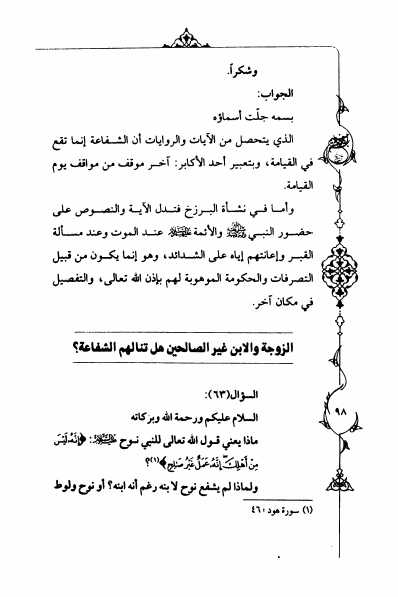 وشكراً.
الجواب:
بسمه جلّت أسماؤه
الذي يتحصل من الآيات والروايات أن الشفاعة إنما تقع
في القيامة، وبتعبير أحد الأكابر: آخر موقف من مواقف يوم
القيامة.
وأما في نشأة البرزخ فتدل الآية والنصوص على
حضور النبي ﷺ والأئمة عند الموت وعند مسألة
القبر وإعانتهم إياه على الشدائد، وهو إنما يكون من قبيل
التصرفات والحكومة الموهوبة لهم بإذن الله تعالى، والتفصيل
في مكان آخر.
الزوجة والابن غير الصالحين هل تنالهم الشفاعة؟
السؤال(٦٣):
السلام عليكم ورحمة الله وبركاته
ماذا يعني قول الله تعالى للنبي نوح : ﴿إِنَّهُ لَيْسَ
مِنْ أَهْلِكَ إِنَّهُ عَمَلٌ غَيْرُ صَالِحٍ﴾(١)؟
ولماذا لم يشفع نوح لابنه رغم أنه ابنه؟ أو نوح ولوط
(١) سورة هود: ٤٦.
٩٨